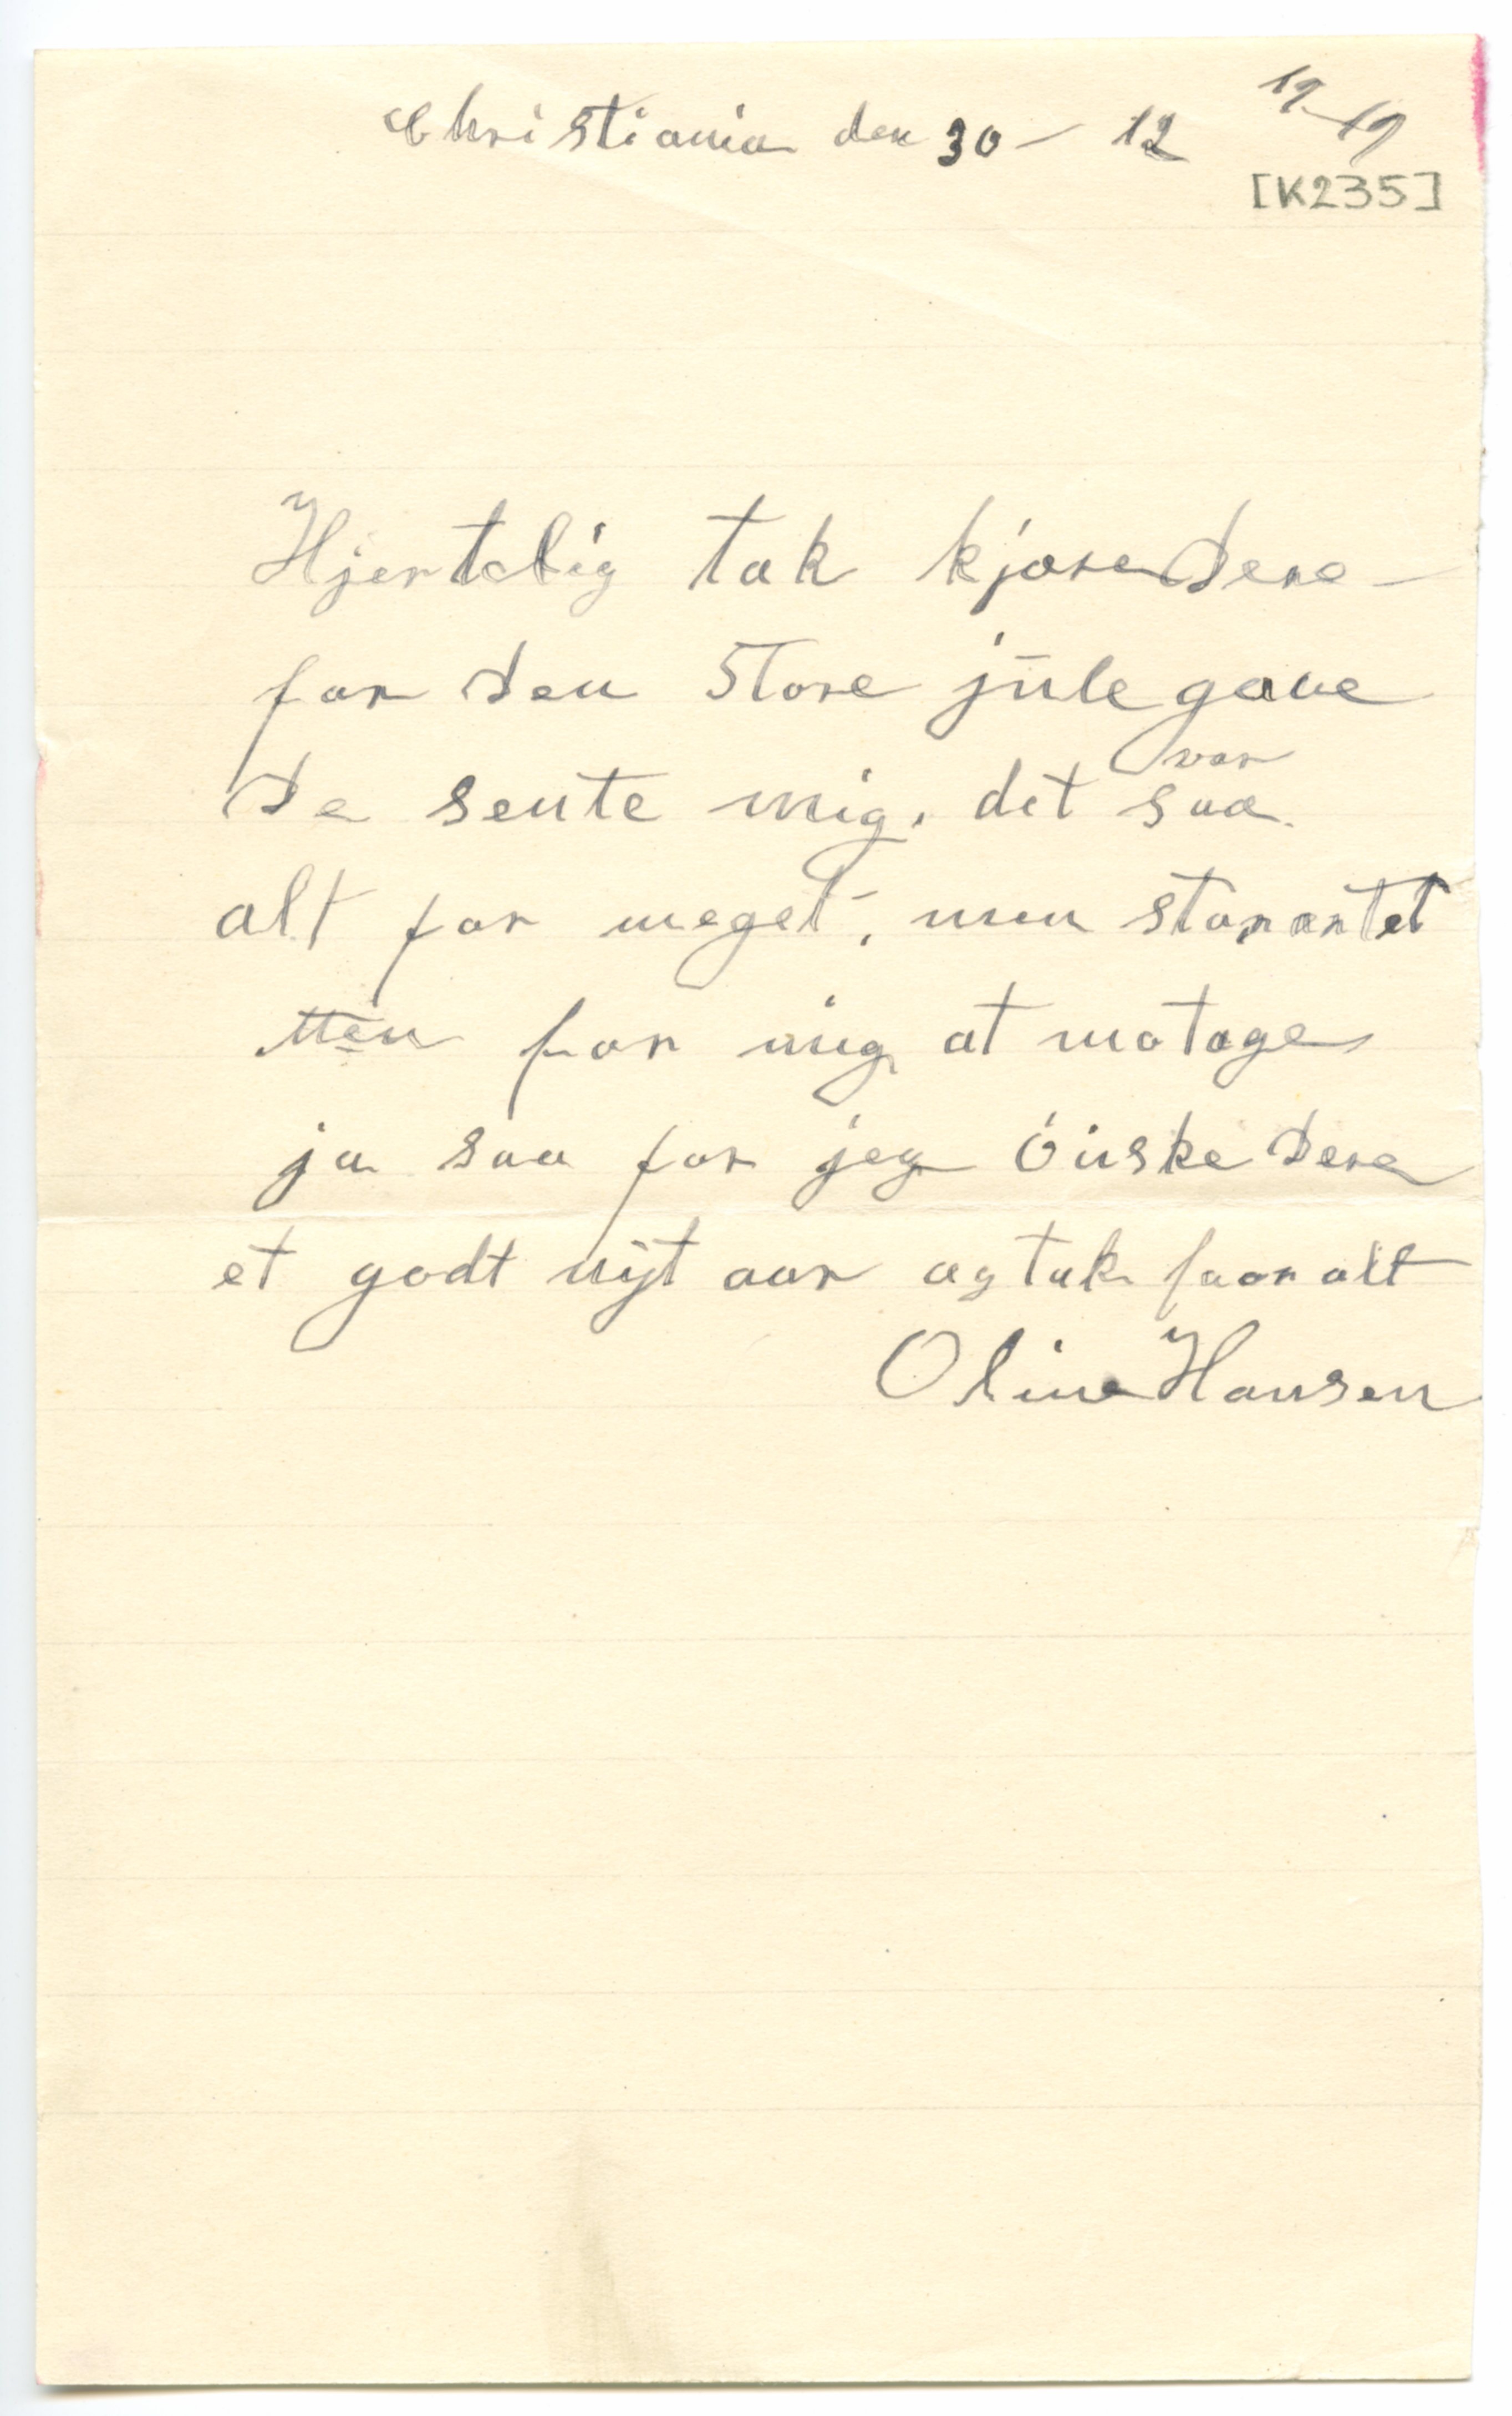 Christiania den 30 – 12 19–19
[K235]
Hjertelig tak kjære Dere –
for Den Store jule gave
De sente mig. det var saa
alt for meget, men storartet
for mig at motage
ja saa for jeg önske Dere
et godt nyt aar og tak foor alt
Oline Hansen